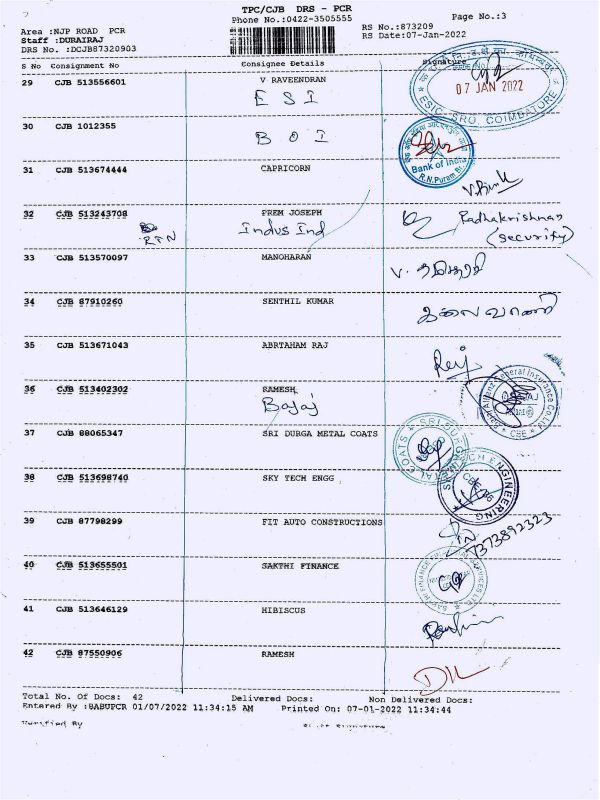 TPC/CJB DRS - PCR
Phone No.:0422-3505555
Page No.:3
Area :NJP ROAD PCR
Staff :DURAIRAJ
DRS No. :DCJB87320903
RS No.:873209
RS Date:07-Jan-2022
S No Consignment No Consignee Details Signature
29 CJB 513556601 V RAVEENDRAN
ESI
07 JAN 2022
ESIC-SRO, COIMBATORE
30 CJB 1012355
BOI
Bank of India
R.N.Puram Br.
31 CJB 513674444 CAPRICORN
32 CJB 513243708 PREM JOSEPH
RTN Indus Ind
Radhakrishnan
(Security)
33 CJB 513570097 MANOHARAN
34 CJB 87910260 SENTHIL KUMAR
கலைவாணி
35 CJB 513671043 ABRTAHAM RAJ
36 CJB 513402302 RAMESH
Bajaj
Bajaj Allianz General Insurance Co.Ltd
CBE
37 CJB 88065347 SRI DURGA METAL COATS
SRI DURGA METAL COATS
38 CJB 513698740 SKY TECH ENGG
TECH ENGINEERING
39 CJB 87798299 FIT AUTO CONSTRUCTIONS
7373892323
40 CJB 513655501 SAKTHI FINANCE
41 CJB 513646129 HIBISCUS
42 CJB 87550906 RAMESH
Total No. Of Docs: 42 Delivered Docs: Non Delivered Docs:
Entered By :BABUPCR 01/07/2022 11:34:15 AM Printed On: 07-01-2022 11:34:44